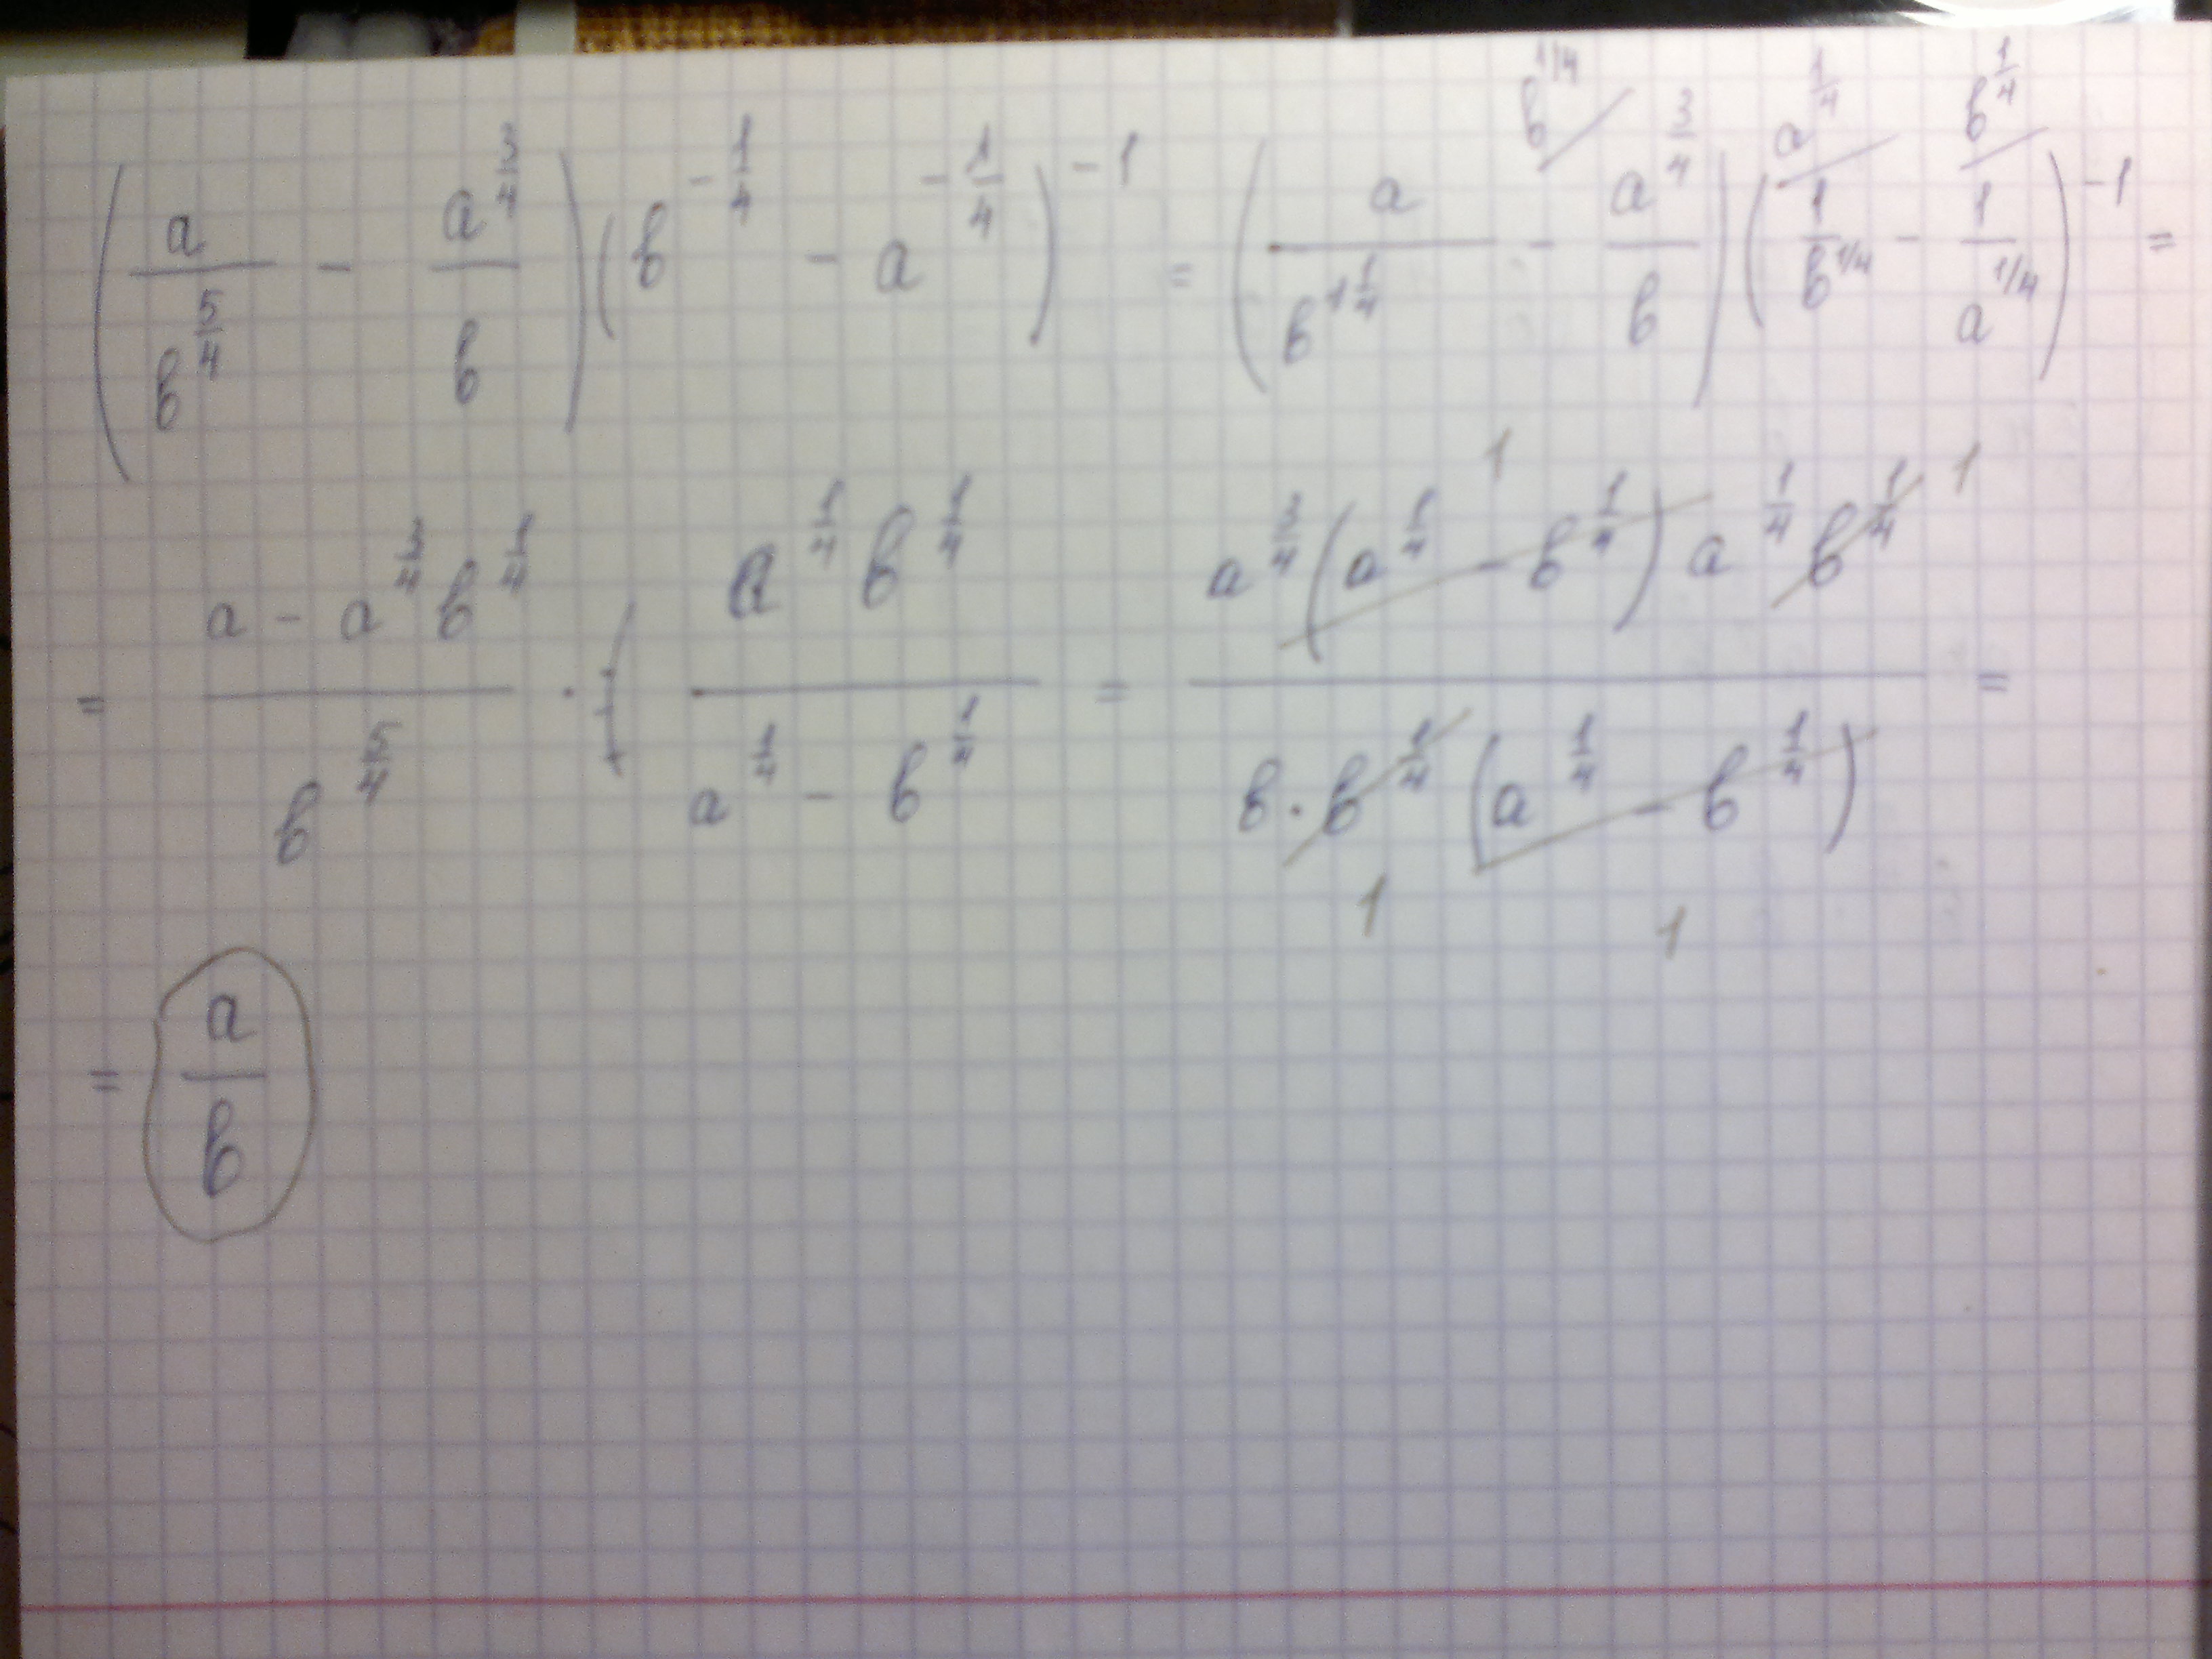 (a/b^(5/4) - a^(3/4)/b)(b^(-1/4) - a^(-1/4))^(-1) = (a/b^(1 1/4) - a^(3/4)/b \ b^(1/4))(1/b^(1/4) \ a^(1/4) - 1/a^(1/4) \ b^(1/4))^(-1) =
= (a - a^(3/4) b^(1/4))/b^(5/4) · (a^(1/4) b^(1/4))/(a^(1/4) - b^(1/4)) = (a^(3/4)(a^(1/4) - b^(1/4)) 1 a^(1/4) b^(1/4) 1)/(b · b^(1/4) 1 (a^(1/4) - b^(1/4)) 1) =
= a/b